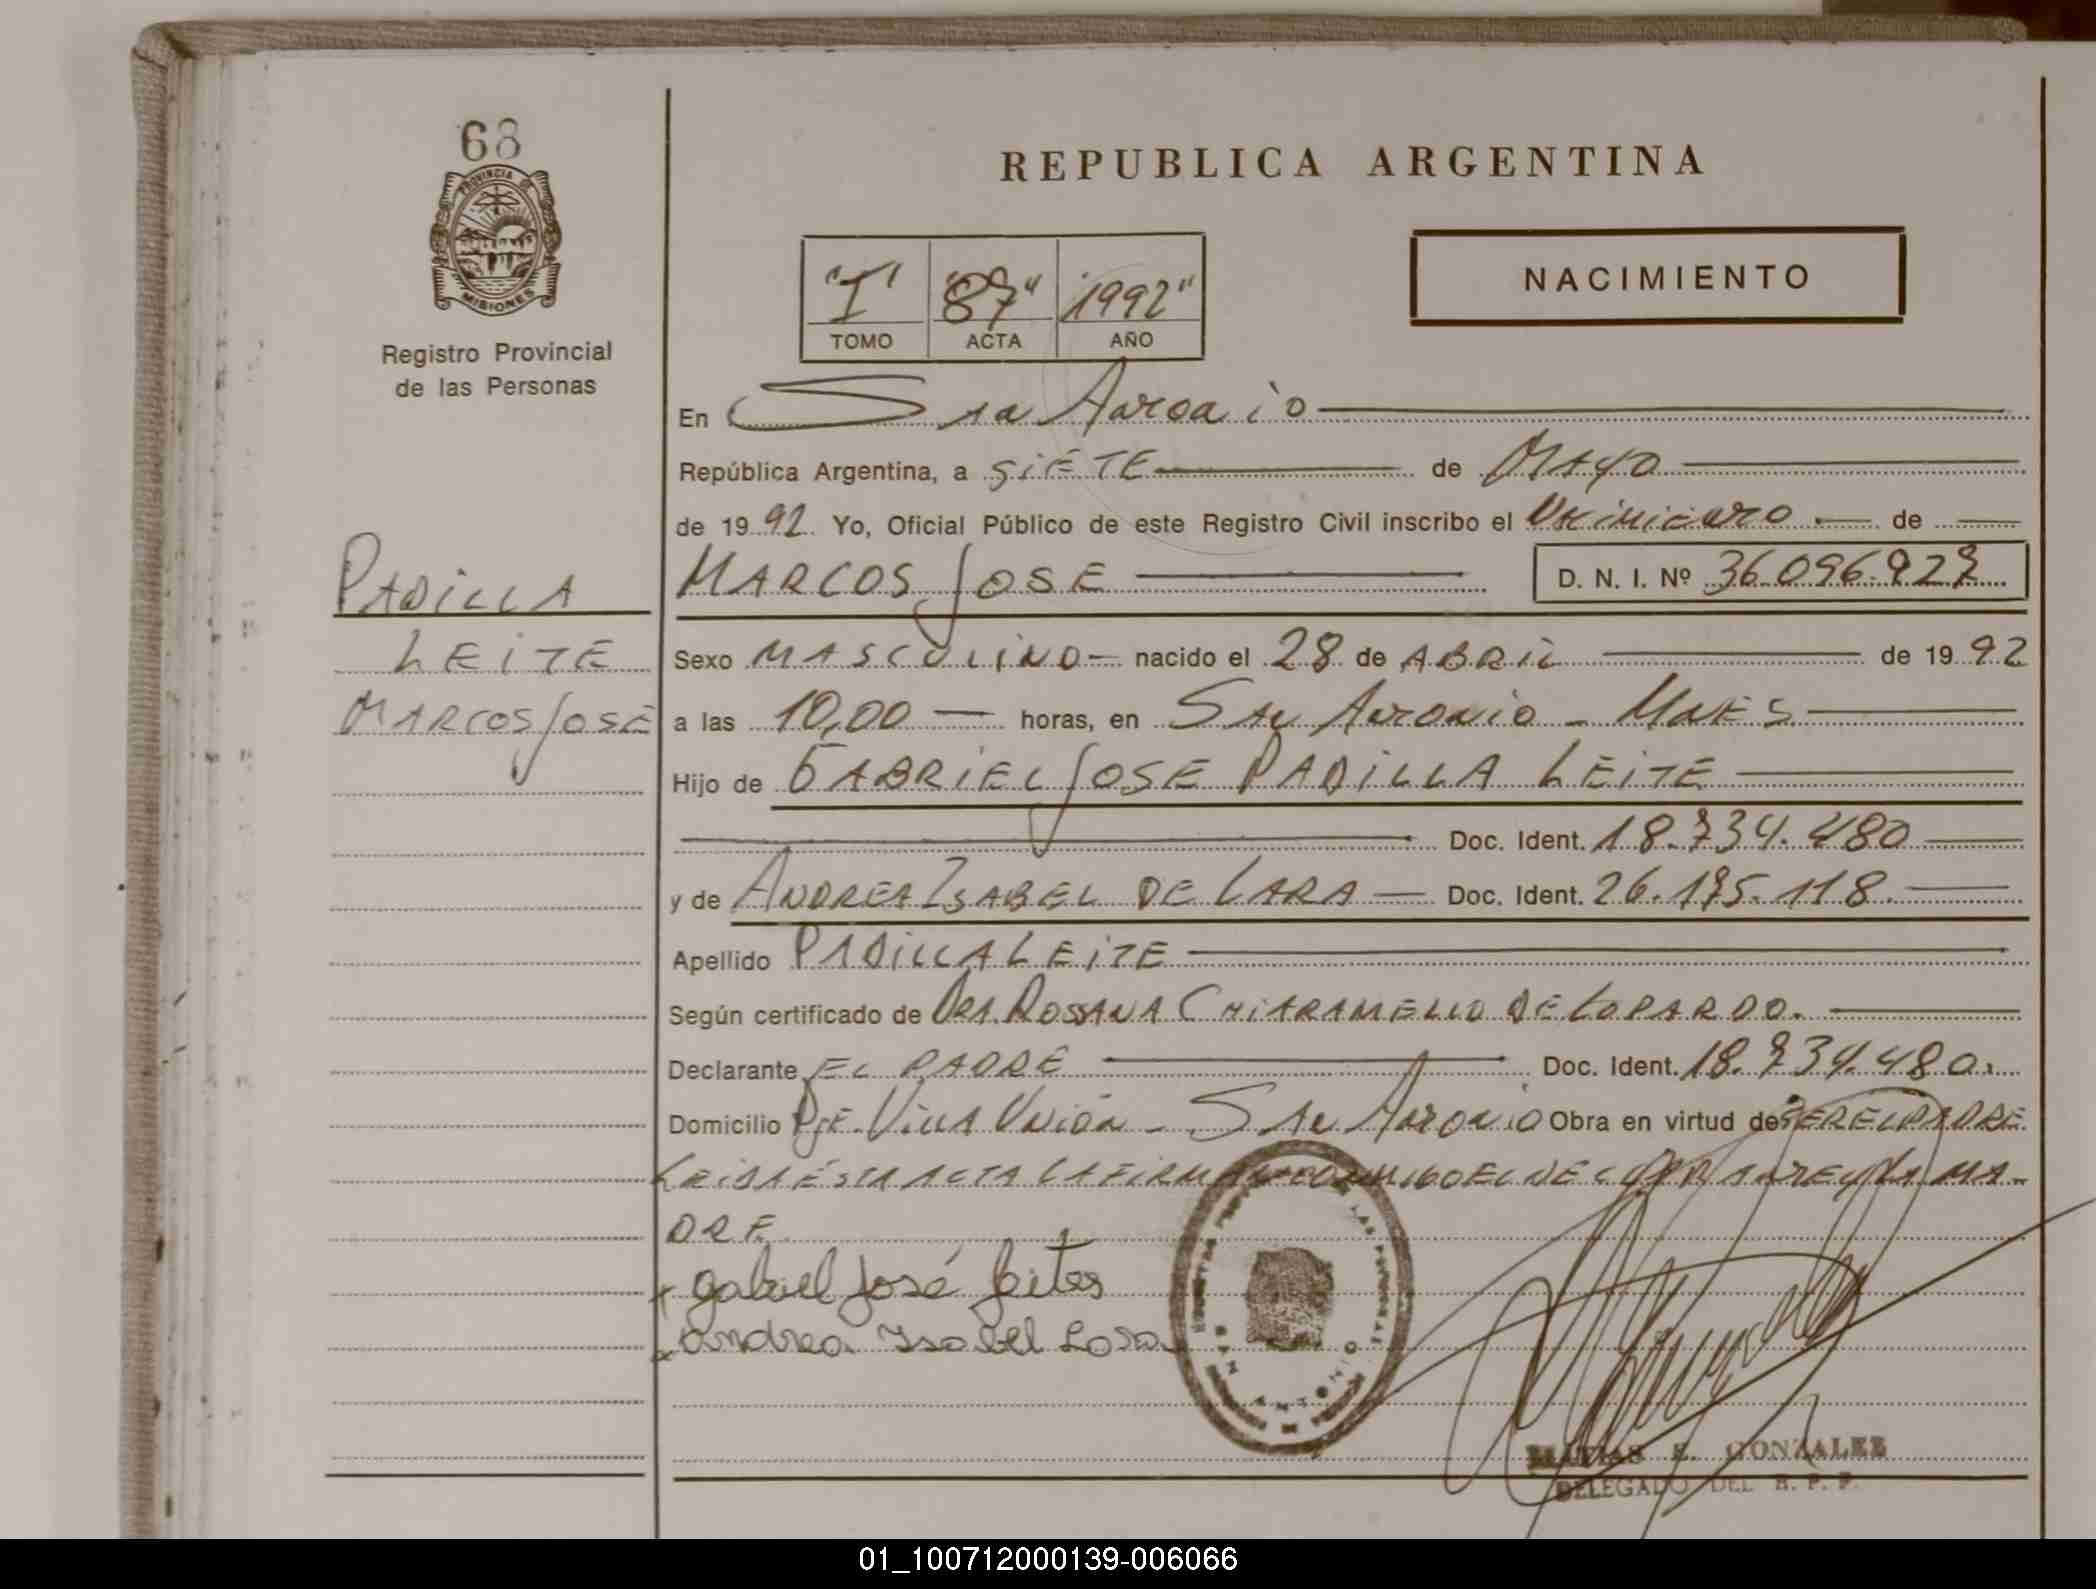 68
PROVINCIA DE
MISIONES
Registro Provincial
de las Personas
REPUBLICA ARGENTINA
NACIMIENTO
"I" "87" "1992"
TOMO ACTA AÑO
En San Antonio
República Argentina, a SiETE de MAYO
de 1992. Yo, Oficial Público de este Registro Civil inscribo el NACIMIENTO de
MARCOS JOSE D. N. I. Nº 36096.927
PADILLA
LEITE
MARCOS JOSÉ
Sexo MASCULINO nacido el 28 de ABRIL de 1992
a las 10,00 horas, en SAN ANTONIO - MNES
Hijo de GABRIEL JOSE PADILLA LEITE
Doc. Ident. 18.734.480
y de ANDREA ISABEL DE LARA Doc. Ident. 26.175.118.
Apellido PADILLA LEITE
Según certificado de DRA. ROSSANA CHIARAMELLO DE LOPARDO.
Declarante EL PADRE Doc. Ident. 18.734.480.
Domicilio PJE. VILLA UNIÓN - SAN ANTONIO Obra en virtud de SER EL PADRE
LEIDA ÉSTA ACTA LA FIRMAN CONMIGO EL DECLARANTE Y LA MA-
DRE
x gabriel José Leites
x andrea Isabel Lara
SAN ANTONIO
MATIAS E. GONZALEZ
DELEGADO DEL R. P. P.
01_100712000139-006066